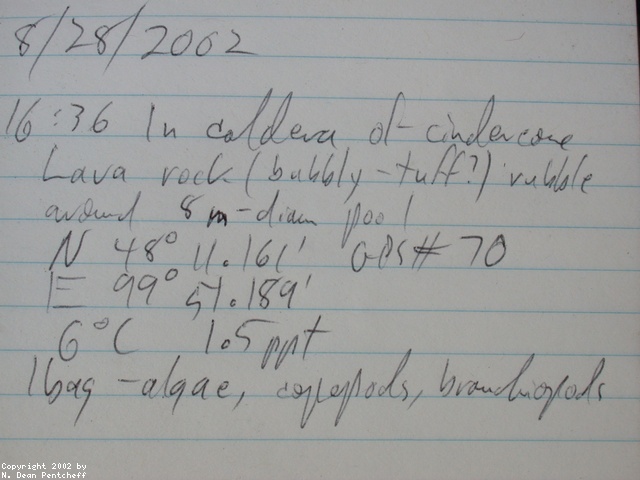 8/28/2002
16:36 In caldera of cindercone
Lava rock (bubbly-tuff?) rubble
around 8m-diam pool
N 48° 11.161' GPS# 70
E 99° 51.189'
6°C 1.5ppt
1 bag - algae, copepods, branchiopods
Copyright 2002 by
N. Dean Pentcheff